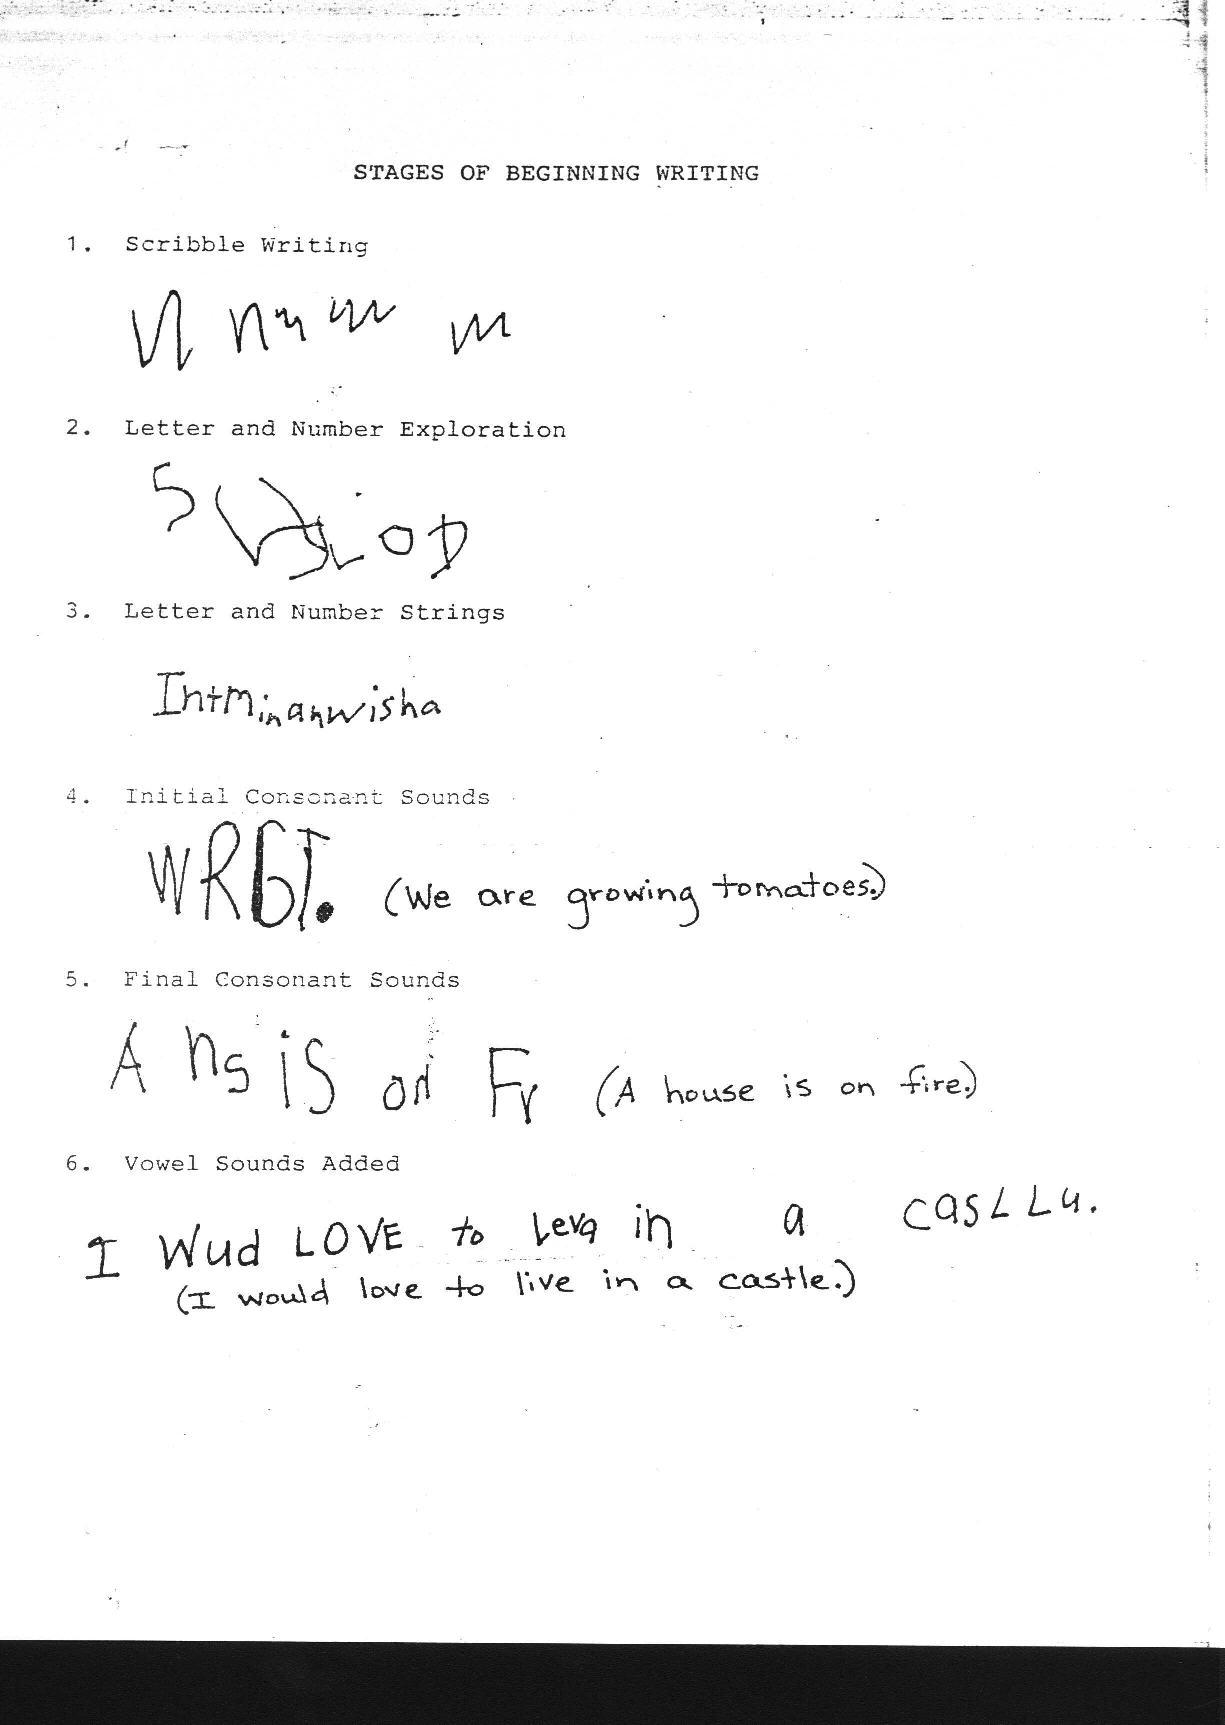 STAGES OF BEGINNING WRITING
1. Scribble Writing
2. Letter and Number Exploration
3. Letter and Number Strings
Intminanwisha
4. Initial Consonant Sounds
WRGT. (We are growing tomatoes.)
5. Final Consonant Sounds
A hs is on Fr (A house is on fire.)
6. Vowel Sounds Added
I Wud LOVE to Leva in a casLLu.
(I would love to live in a castle.)